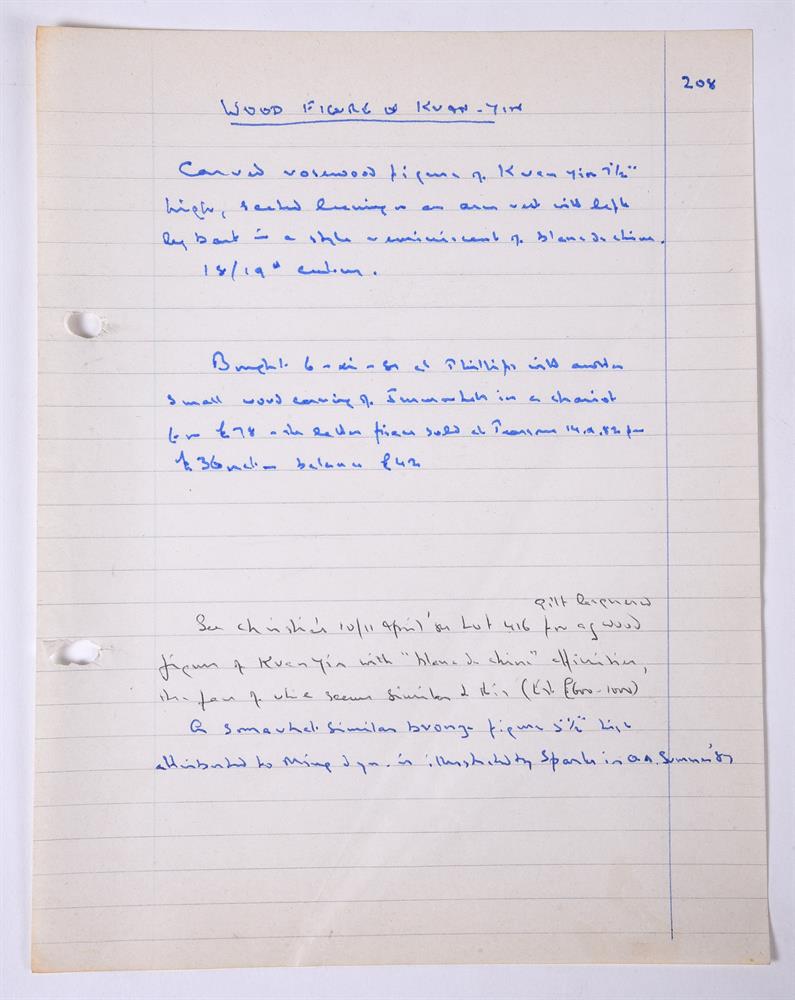 208
WOOD FIGURE OF KUAN-YIN
Carved rosewood figure of Kuan Yin 7½"
high, seated leaning on an arm rest with left
leg bent in a style reminiscent of blanc de chine.
18/19th century.
Bought 6-xi-81 at Phillips with another
small wood carving of Immortals in a chariot
for £78 - the latter piece sold at 82 for
£36 net - balance £42
gilt lacquered
See Christie's 10/11 April Lot 416 for a g wood
figure of Kuan Yin with "blanc de chine" affinities,
the face of which seems similar to this (Est. £600-1000)
A somewhat similar bronze figure 5½" high
attributed to Ming dyn. is illustrated by Spanks in O.A. Summer